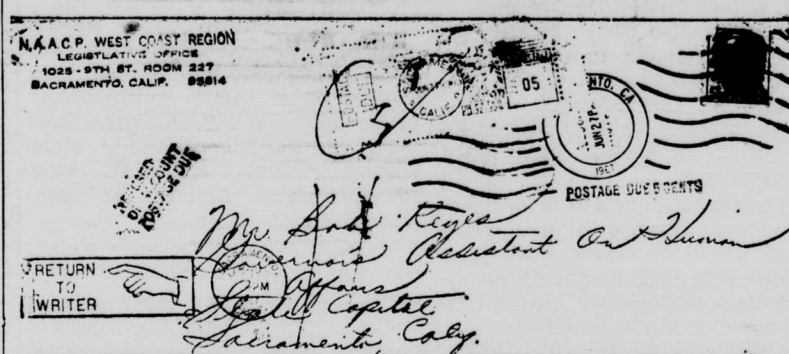 N.A.A.C.P. WEST COAST REGION
LEGISLATIVE OFFICE
1025 - 9TH ST. ROOM 227
SACRAMENTO, CALIF. 95814
CALIF.
05
NTO, CA
JUN 27 P
1967
POSTAGE DUE 5 CENTS
REFUSED
ON ACCOUNT
POSTAGE DUE
Mr. Bob Keyes
Governors Assistant On Human
Affairs
State Capitol
Sacramento Caly.
PM
RETURN
TO
WRITER